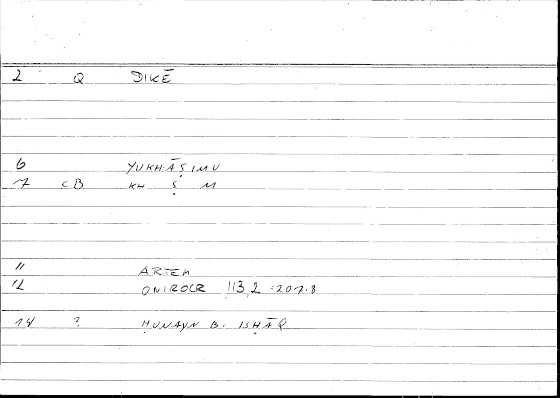 2 Q DIKĒ
6 YUKHĀṢIMU
7 CB KH Ṣ M
11 ARTEM
12 ONIROCR 113,2 = 207.8
14 ? ḤUNAYN B. ISḤĀQ